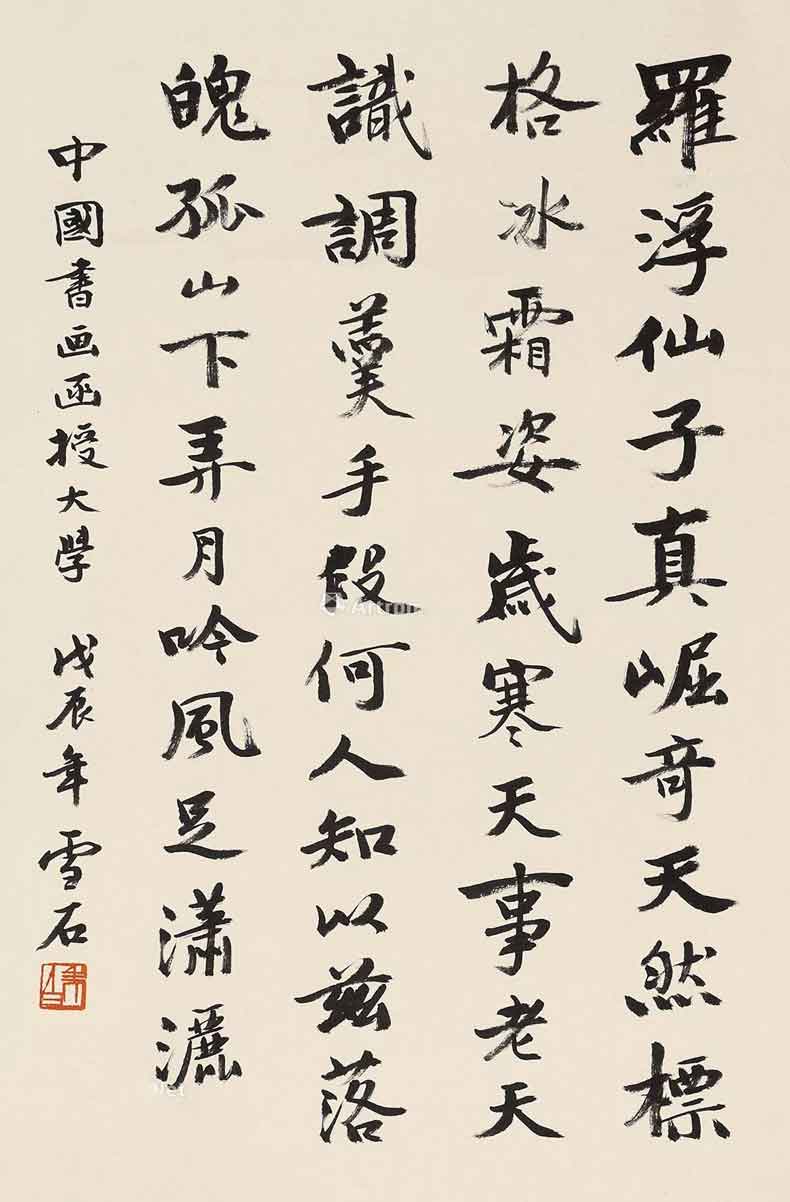 羅浮仙子真崛奇天然標
格冰霜姿歲寒天事老天
識調羹手段何人知以兹落
魄孤山下弄月吟風足瀟灑
中國書画函授大學 戊辰年 雪石
Artron